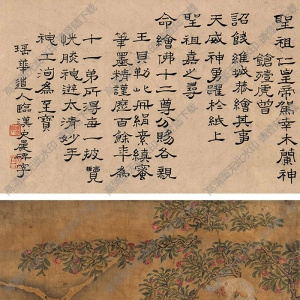 聖祖仁皇帝駕幸木蘭神
鎗殪虎曾
詔餞維城恭繪其事
天威神勇躍於紙上
聖祖嘉之尋
命繪佛十二尊分賜各親
王貝勒此冊絹素縝密
筆墨精謹歷百餘年為
十一弟所得每一披覽
恍睇神遊太清妙手
神工洵為至寶
瑤華道人臨漢史晨碑字